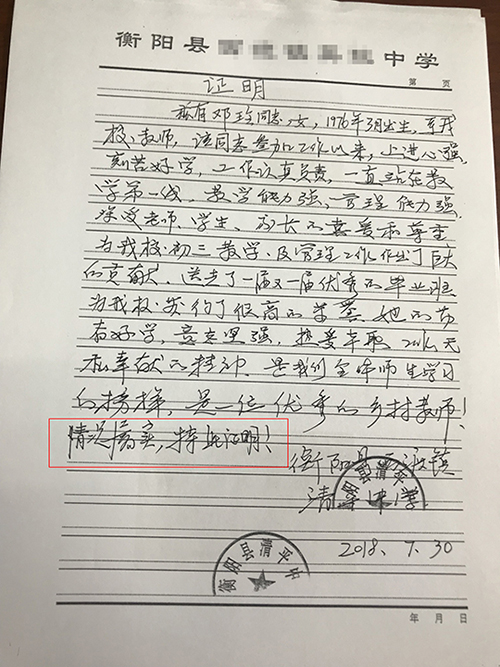 衡阳县 中学
证明
第 页
兹有邓 同志,女,1976年3月出生,系我
校教师,该同志参加工作以来,上进心强,
刻苦好学,工作认真负责,一直站在教
学第一线,教学能力强、管理能力强,
深受老师、学生、家长的喜爱和尊重
为我校初三教学及管理工作作出了巨大
的贡献,送走了一届又一届优秀的毕业班
为我校 很高的荣誉,她的
好学,意志坚强,热爱本职工作,无
私奉献的精神,是我们全体师生学习
的榜样,是一位优秀的乡村教师!
情况属实,特此证明!
衡阳县 镇
清平中学
衡阳县清平中学
2018.7.30
衡阳县清平中
年 月 日